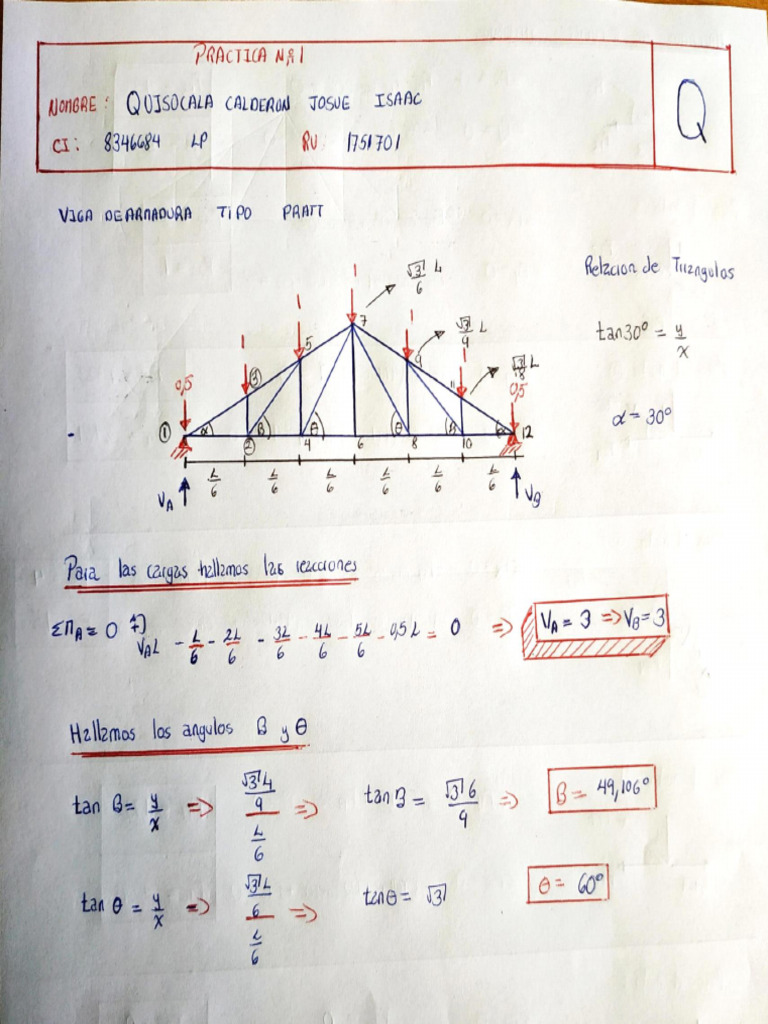 PRACTICA Nº1
NOMBRE: QUISOCALA CALDERON JOSUE ISAAC
CI: 8346684 LP RU 1751701
Q
VIGA DE ARMADURA TIPO PRATT
Relacion de Triangulos
tan30° = y/x
α = 30°
√3/6 L
√3/9 L
√3/18 L
1 1 1 1 1
0,5 0,5
① ② ③ 4 5 6 7 8 9 10 11 12
α B θ θ B α
L/6 L/6 L/6 L/6 L/6 L/6
VA VB
Para las cargas hallamos las reacciones
ΣMA = 0 VAL - L/6 - 2L/6 - 3L/6 - 4L/6 - 5L/6 - 0,5L = 0 => VA = 3 => VB = 3
Hallamos los angulos B y θ
tan B = y/x => √3L/9 / L/6 => tan B = √3 6/9 => B = 49,106°
tan θ = y/x => √3L/6 / L/6 => tan θ = √3 θ = 60°